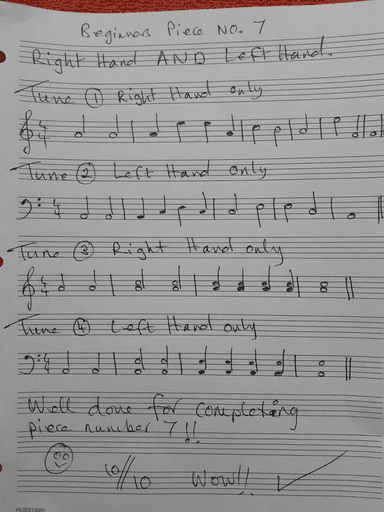 Beginners Piece No. 7
Right Hand AND Left Hand.
Tune 1 Right Hand only
Tune 2 Left Hand only
Tune 3 Right Hand only
Tune 4 Left Hand only
Well done for completing
piece number 7!!
10/10 Wow!!
HL00210001